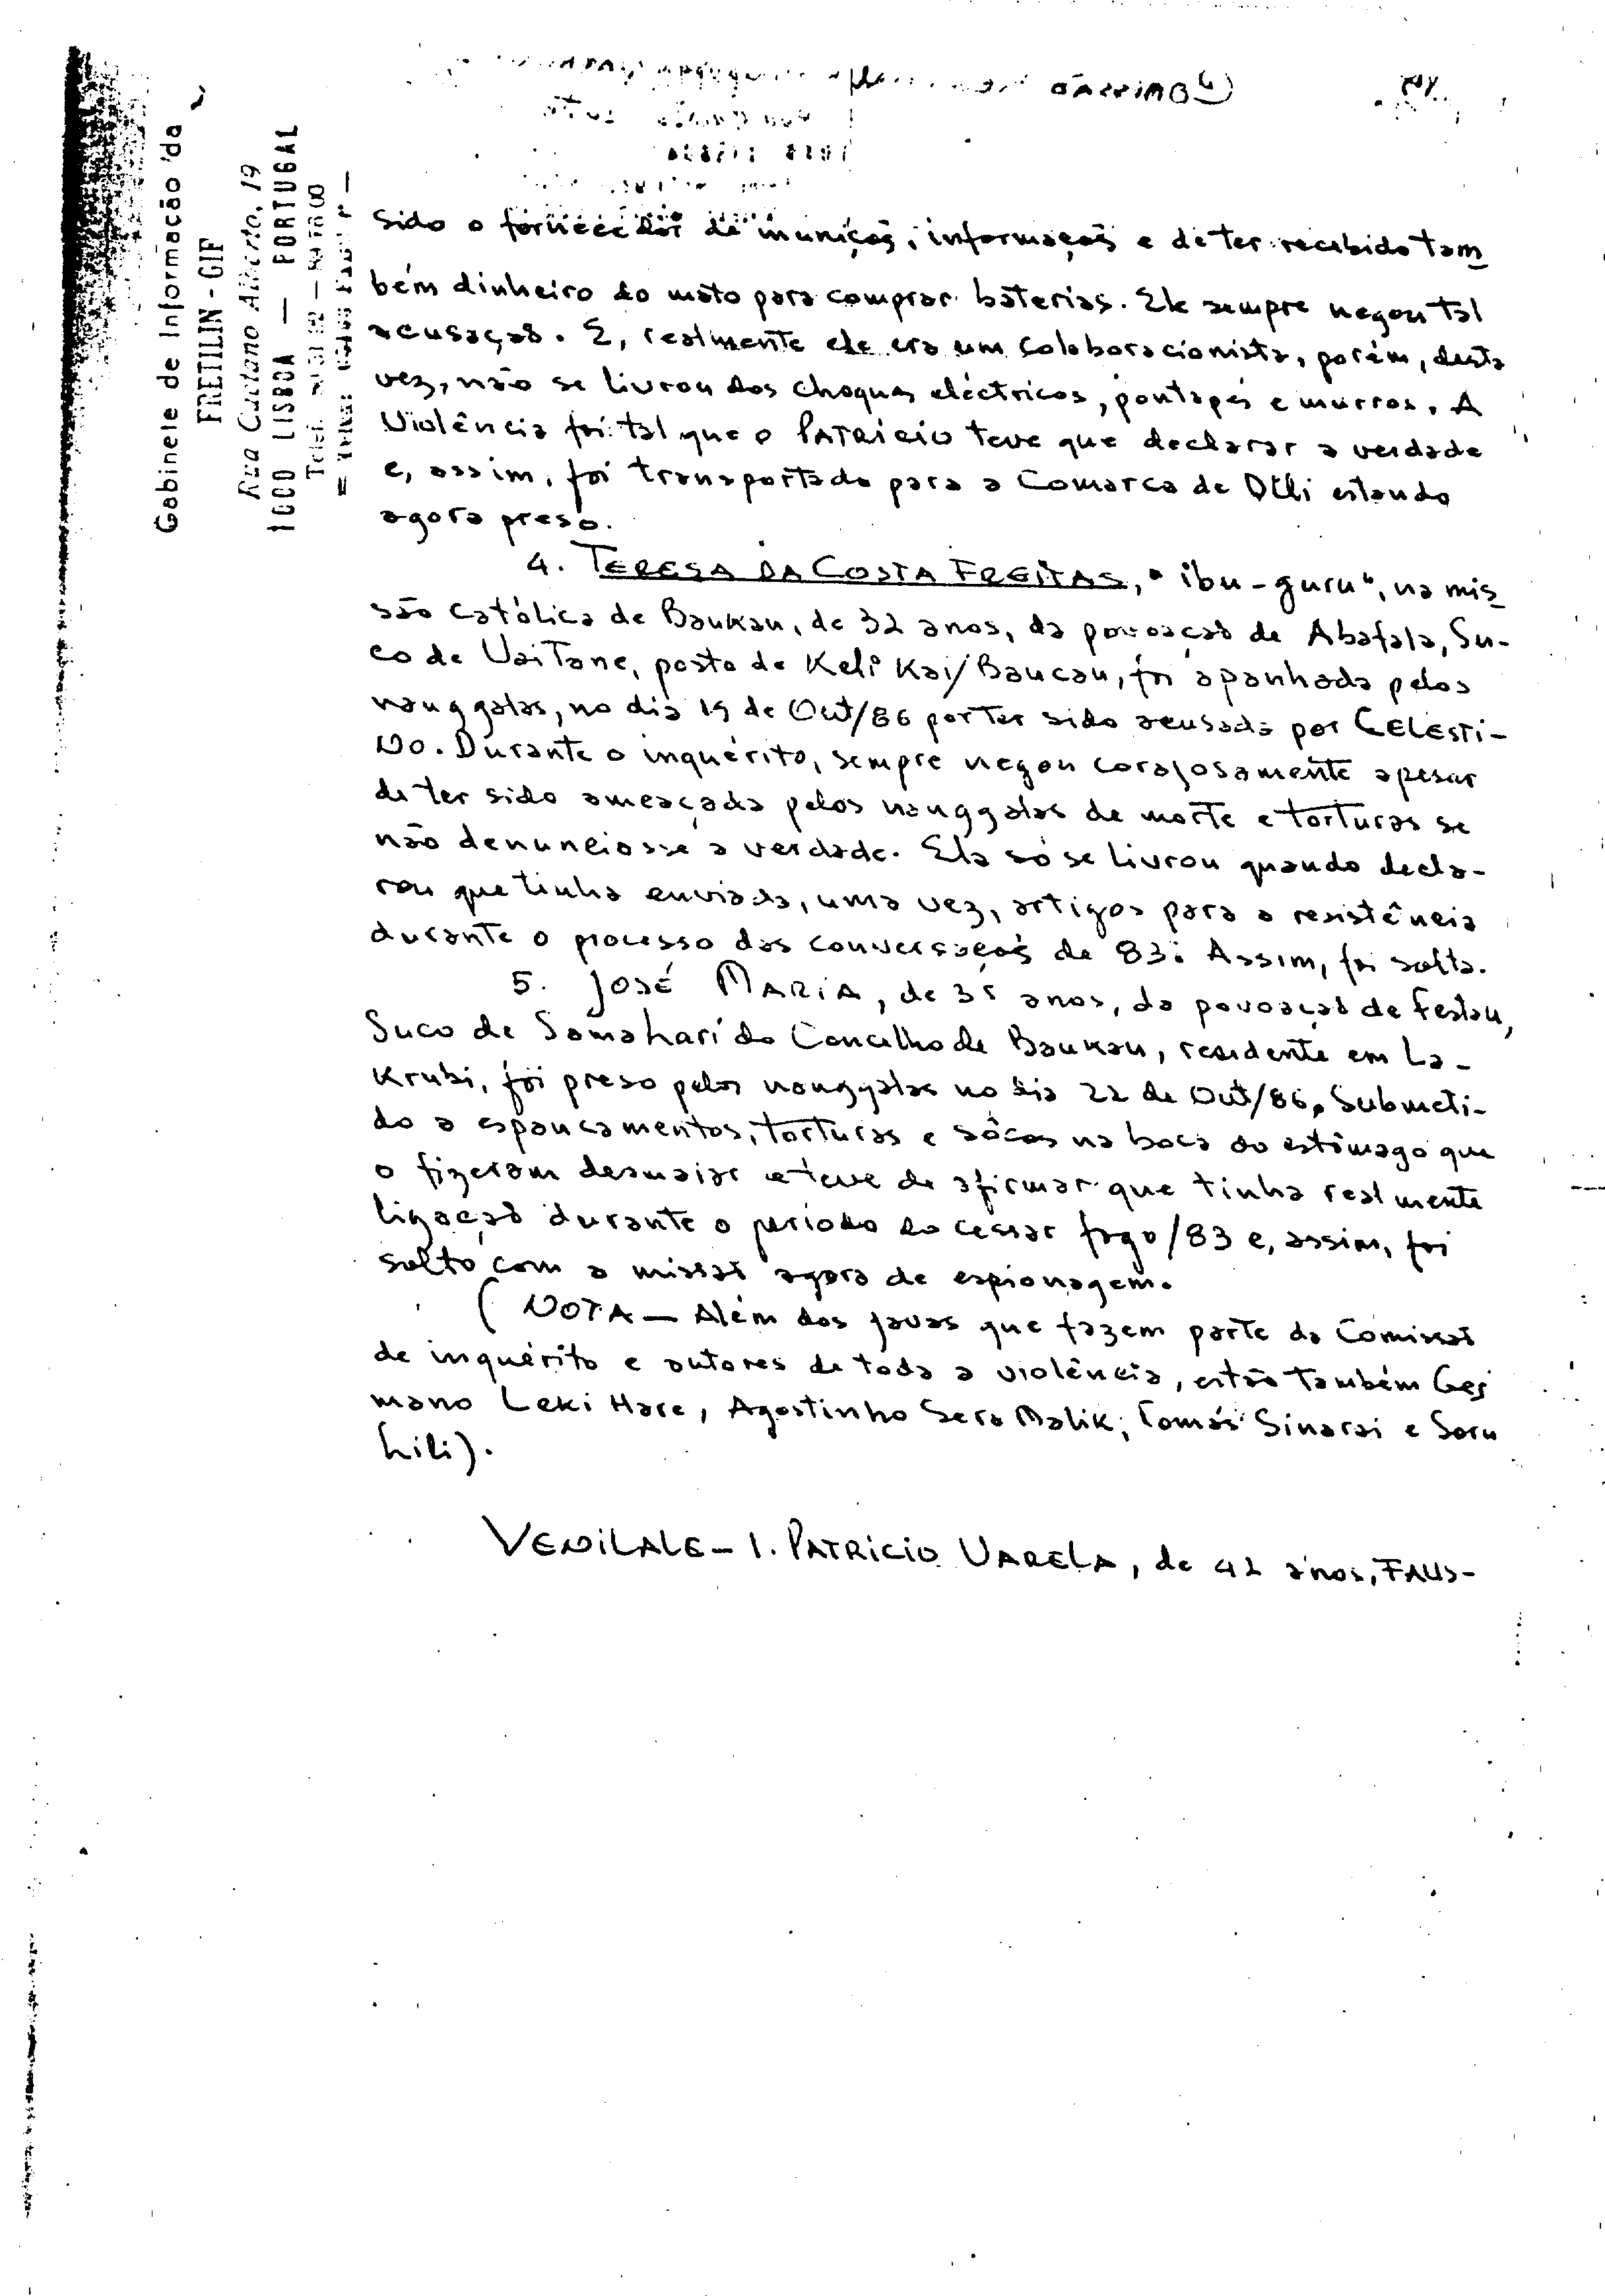 Gabinete de Informação da
FRETILIN - GIF
Rua Caetano Alberto, 19
1000 LISBOA — PORTUGAL
sido o fornecedor de munições, informações e de ter recebido tam
bém dinheiro do mato para comprar baterias. Ele sempre negou tal
acusação. E, realmente ele era um colaboracionista, porém, desta
vez, não se livrou dos choques eléctricos, pontapés e murros. A
Violência foi tal que o PATRÍCIO teve que declarar a verdade
e, assim, foi transportado para a Comarca de Dili estando
agora preso.
4. TERESA DA COSTA FREITAS, "ibu-guru", na mis
são católica de Baukau, de 32 anos, da povoação de Abafala, Su-
co de Uai Tane, posto de Keli Kai/Baucau, foi apanhada pelos
nanggalas, no dia 19 de Out/86 por ter sido acusada por CELESTI-
NO. Durante o inquérito, sempre negou corajosamente apesar
de ter sido ameaçada pelos nanggalas de morte e torturas se
não denunciasse a verdade. Ela só se livrou quando decla-
rou que tinha enviado, uma vez, artigos para a resistência
durante o processo das conversações de 83. Assim, foi solta.
5. JOSÉ MARIA, de 35 anos, da povoação de Festau,
Suco de Samahari do Concelho de Baukau, residente em La-
Krubi, foi preso pelos nanggalas no dia 22 de Out/86. Submeti-
do a espancamentos, torturas e sôcos na boca do estômago que
o fizeram desmaiar e teve de afirmar que tinha realmente
ligação durante o período do cessar fogo/83 e, assim, foi
solto com a missão agora de espionagem.
(NOTA — Além dos javas que fazem parte da Comissão
de inquérito e autores de toda a violência, estão também Ger
mano Leki Hare, Agostinho Sera Malik, Tomás Sinarai e Soru
hili).
VENILALE - 1. PATRÍCIO VARELA, de 42 anos, FAUS-